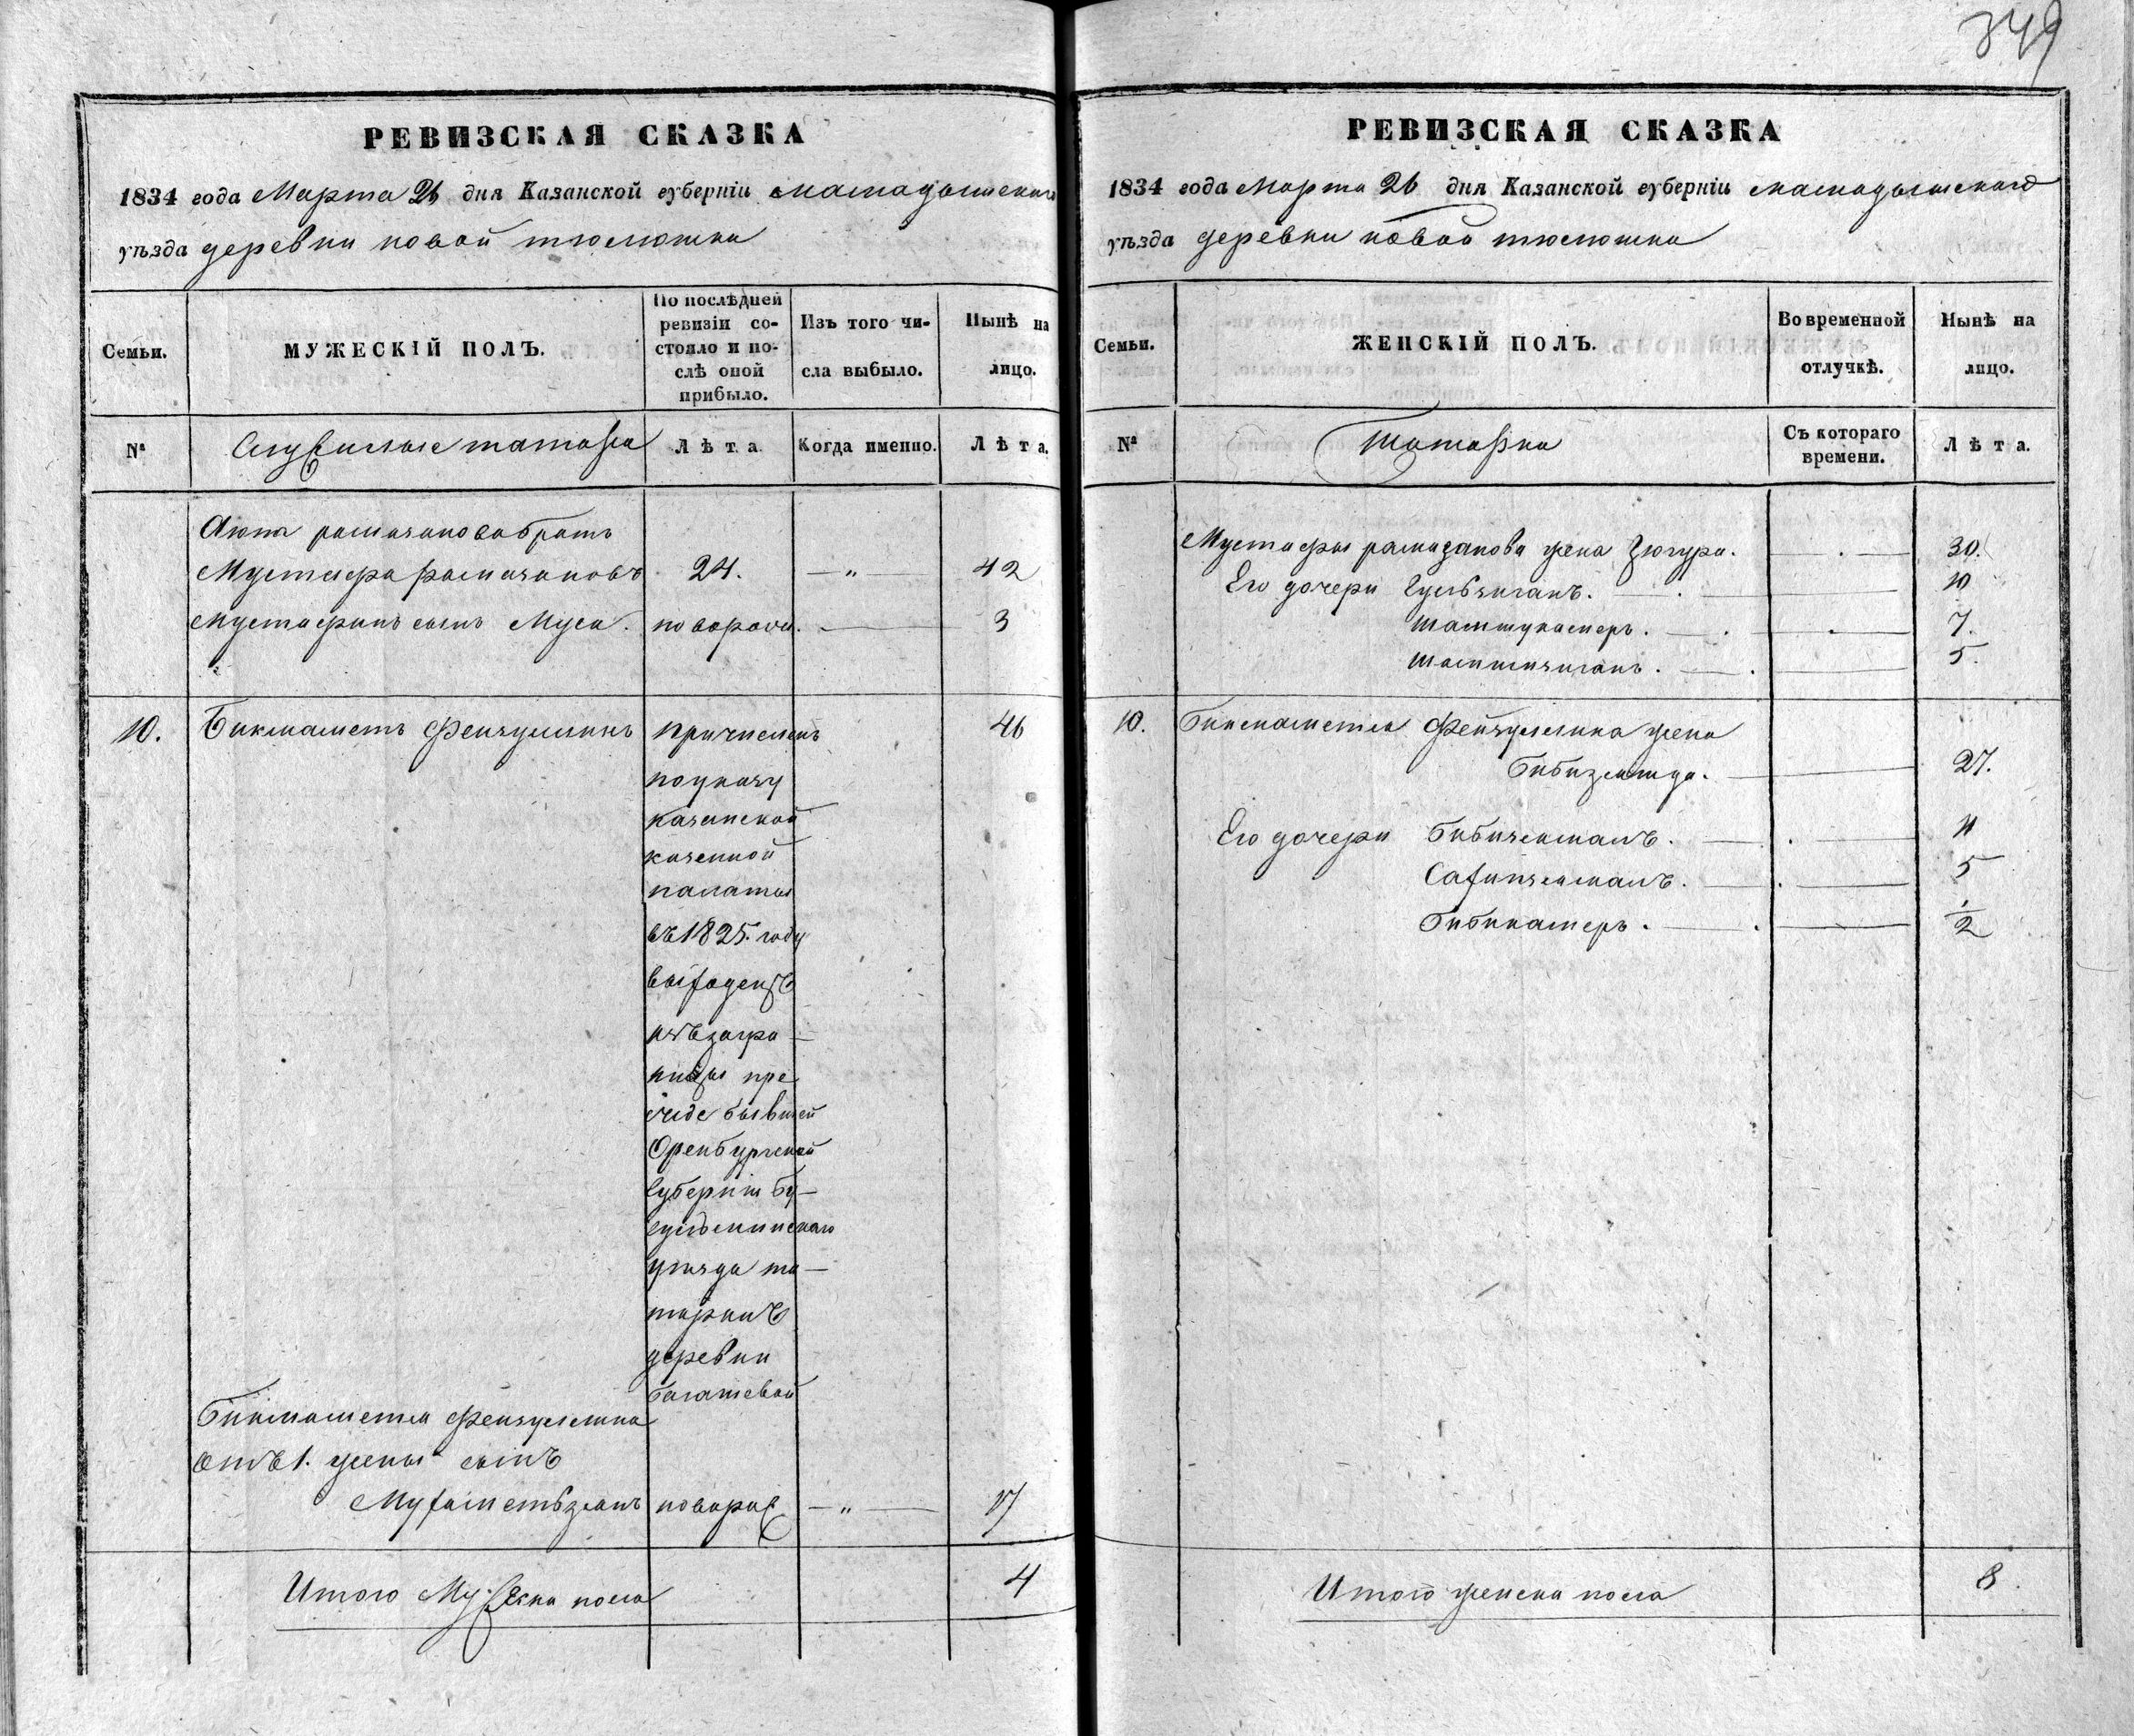 349
РЕВИЗСКАЯ СКАЗКА
1834 года Марта 26 дня Казанской губерніи мамадышскаго
уѣзда деревни новой тюлюшки
Семьи.
МУЖЕСКІЙ ПОЛЪ.
По послѣдней ревизіи со-
стояло и по-
слѣ оной
прибыло.
Изъ того чи-
сла выбыло.
Нынѣ на
лицо.
№
Служилые татара
Лѣта.
Когда именно.
Лѣта.
Аюпа рамазанова братъ
Мустафа рамазановъ 24. — „ — 42
Мустафинъ сынъ Муса. новорож. — 3
10. Бикмаметъ Фейзуллинъ причисленъ 46
по указу
казанской
казенной
палаты
въ 1825. году
выходецъ
изъ загра-
ницы пре
жде бывшей
Оренбургской
губерніи бу-
гульминскаго
уѣзда та-
таринъ
деревни
Бикмаметя Фейзуллина
отъ 1. жены сынъ
Мухаметьзянъ новорож — „ — 17
Итого Мужеска пола 4
РЕВИЗСКАЯ СКАЗКА
1834 года Марта 26 дня Казанской губерніи мамадышскаго
уѣзда деревни новой тюлюшки
Семьи.
ЖЕНСКІЙ ПОЛЪ.
Во временной
отлучкѣ.
Нынѣ на
лицо.
№
Татарки
Съ котораго
времени.
Лѣта.
Мустафы рамазанова жена Зюгура. 30.
Его дочери Гульзиганъ. 10
Шамшукамеръ. 7.
Шамшизиганъ. 5.
10. Бикмаметя Фейзуллина жена
Бибизямида. 27.
Его дочери Бибиземалъ. 11
Сахипземалъ. 5
Бибикамеръ. 1/2
Итого женска пола 8.